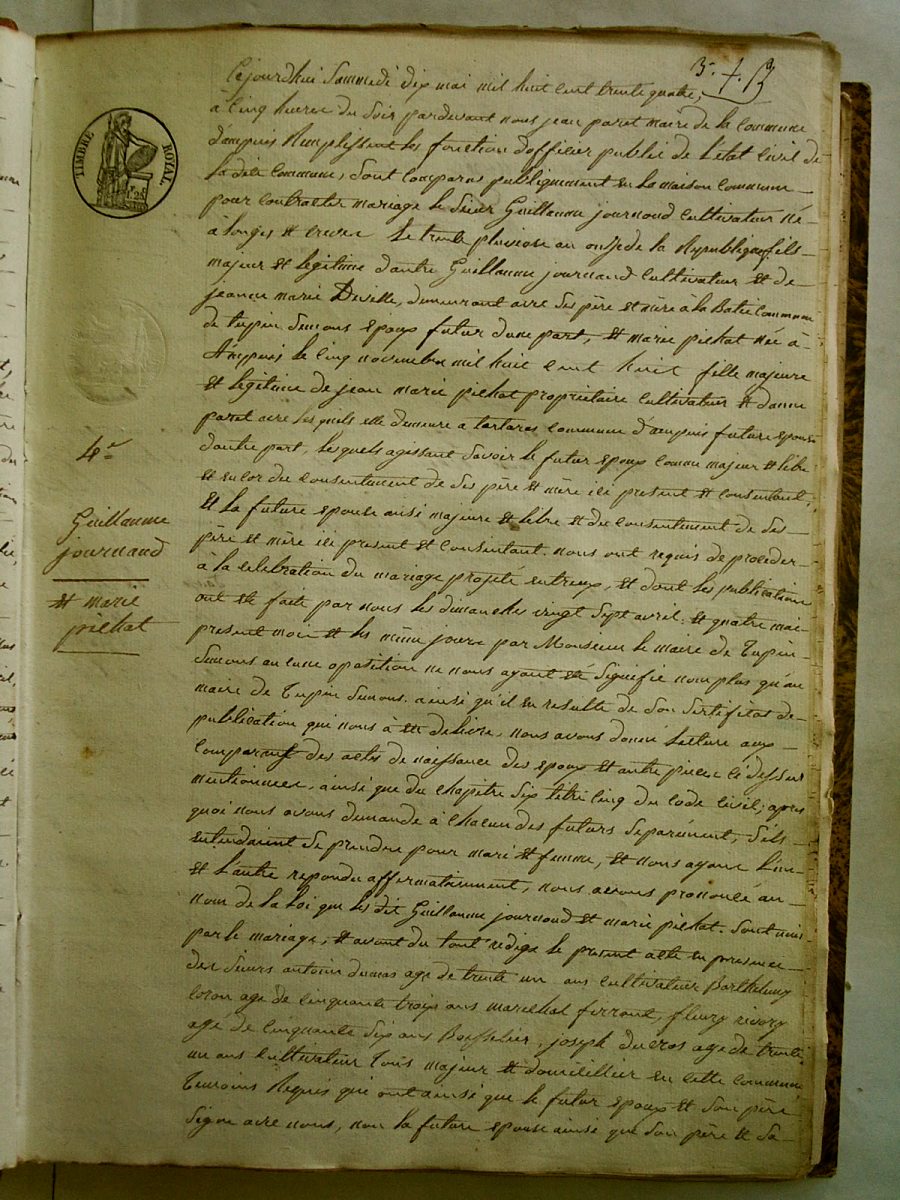 TIMBRE ROYAL
4e
Guillaume
journaud
et marie
pichat
Cejourdhui Sammedi dix mai mil huit cent trente quatre,
à cinq heures du Soir pardevant nous jean paret maire de la commune
dampuis Remplissant les fonction dofficier public de l'état Civil de
la dite commune, sont comparus publiquement en la maison commune
pour contracter mariage le sieur Guillaume journoud cultivateur né
à longes et trèves le trente pluviose an onze de la Republique fils
majeur et legitime dautre Guillaume journaud cultivateur et de
jeanne marie Deville, demeurant avec ses père et mère à la Batie commune
de tupin Semons epoux futur dune part, et marie pichat née à
Ampuis le cinq novembre mil huit cent huit fille majeure
et legitime de jean marie pichat propriétaire cultivateur et danne
paret avec les quels elle demeure a tartaras commune d'ampuis future epouse
dautre part, les quels agissant savoir le futur epoux comme majeur et libre
et encor du consentement de ses père et mère ici present et consentant,
et la future epouse aussi majeure et libre et du consentement de ses
père et mère ici present et consentant. nous ont requis de procéder
à la celebration du mariage projeté entreux, et dont les publication
ont été faite par nous les dimanches vingt sept avril et quatre mai
present mois et les même jours par Monsieur le maire de Tupin
Semons aucune oposition ne nous ayant été signifié nomplus qu'au
maire de Tupin Semons. ainsi qu'il en resulte de son Sertifitas de
publication qui nous à été delivré, nous avons donné lecture aux
comparants des actes de naissance des epoux et autre pièces ci dessus
mentionnées, ainsi que du chapitre six titre cinq du code civil; apres
quoi nous avons demandé à chacun des futurs separément, s'ils
entendaient se prendre pour mari et femme, et nous ayant l'un
et l'autre repondu affirmativement, nous avons prononcé au
nom de la loi que les dit Guillaume journoud et marie pichat. sont unis
par le mariage, et avant du tout redigé le present acte en presence
des sieurs antoine dumas age de trente un ans cultivateur Barthelemy
age de cinquante trois ans marechal ferrant, fleury revory
agé de cinquante six ans Bosselier, joseph ducros age de trente
un ans cultivateur tous majeur et domicillier en cette commune
Temoins Requis qui ont ainsi que le futur epoux et son père
signe avec nous, non la future epouse ainsi que son père et sa